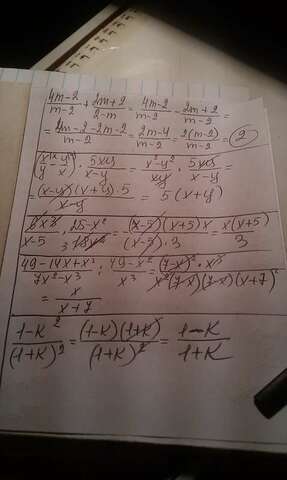 (4m-2)/(m-2) + (2m+2)/(2-m) = (4m-2)/(m-2) - (2m+2)/(m-2) =
= (4m-2-2m-2)/(m-2) = (2m-4)/(m-2) = 2(m-2)/(m-2) = 2
(x/y - y/x) · 5xy/(x-y) = (x²-y²)/xy · 5xy/(x-y) =
= (x-y)(x+y)·5/(x-y) = 5(x+y)
/(x-5) · (25-x²)/18x² = (x-5)(x+5)x/((x-5)·3) = x(x+5)/3
(49-14x+x²)/(7x²-x³) : (49-x²)/x³ = (7-x)²·x³/(x²(7-x)(7-x)(x+7)) =
= x/(x+7)
(1-K²)/(1+K)² = (1-K)(1+K)/(1+K)² = (1-K)/(1+K)